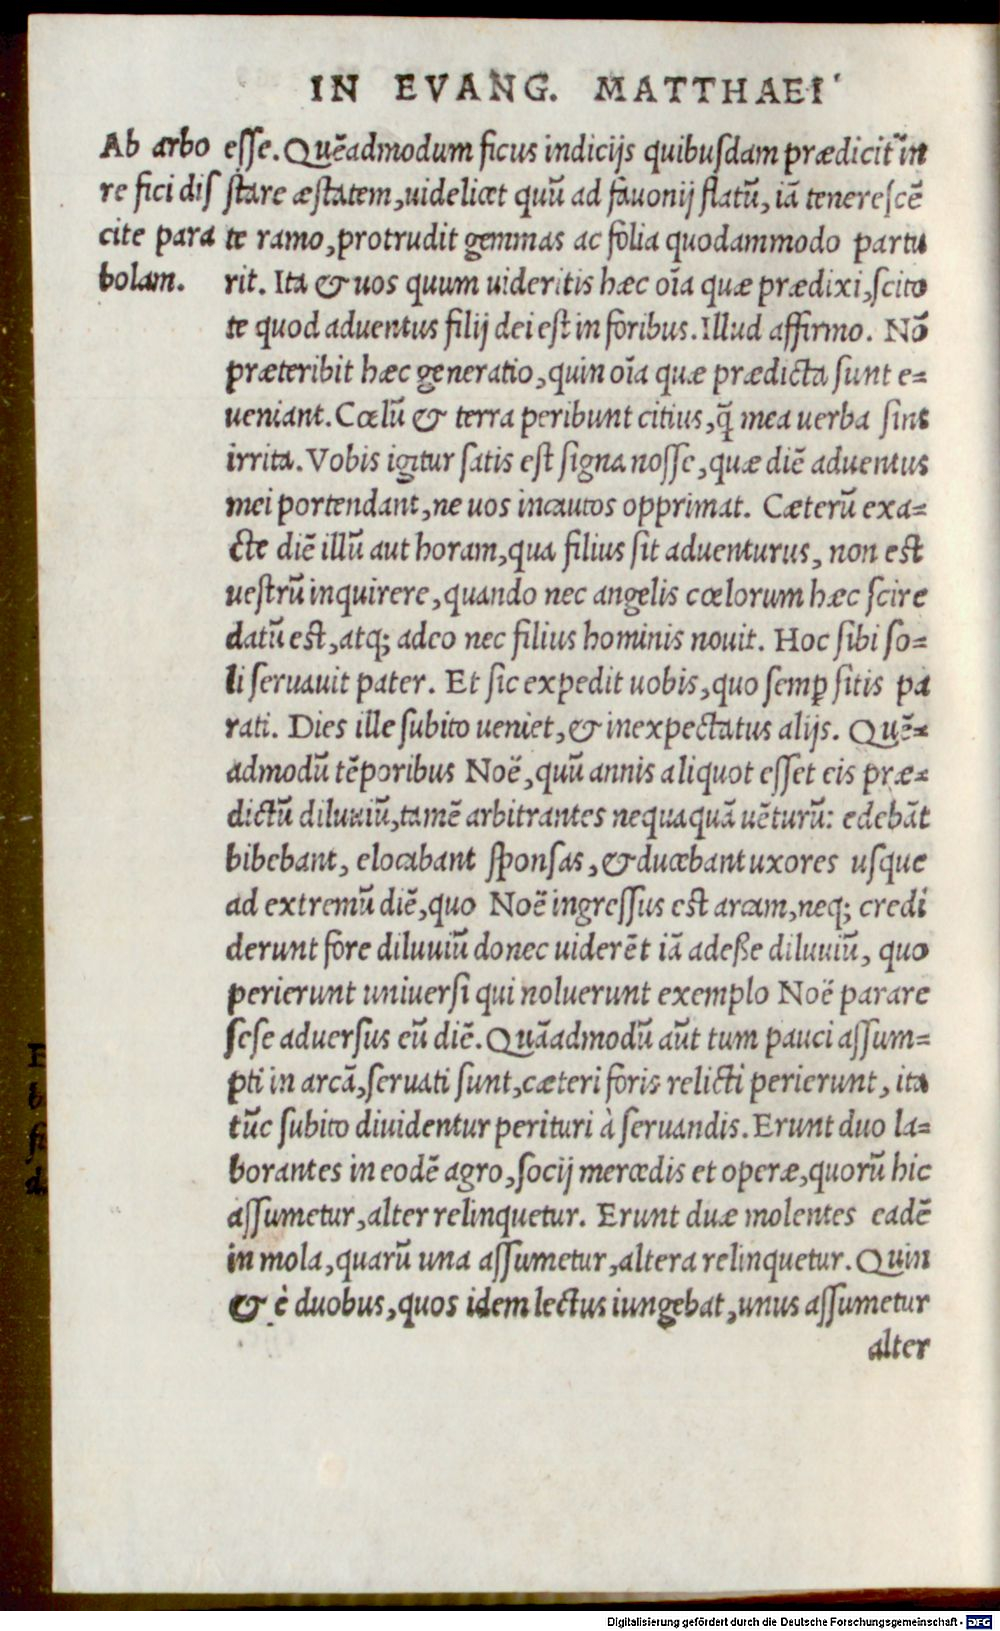 IN EVANG. MATTHAEI
Ab arbo
re fici dis
cite para
bolam.
esse. Quēadmodum ficus indicijs quibusdam prædicit in
stare æstatem, uidelicet quū ad fauonij flatū, iā tenerescē
te ramo, protrudit gemmas ac folia quodammodo partu
rit. Ita & uos quum uideritis hæc oīa quæ prædixi, scito
te quod aduentus filij dei est in foribus. Illud affirmo. Nō
præteribit hæc generatio, quin oīa quæ prædicta sunt e=
ueniant. Cœlū & terra peribunt citius, q̄ mea uerba sint
irrita. Vobis igitur satis est signa nosse, quæ diē aduentus
mei portendant, ne uos incautos opprimat. Cæterū exa=
cte diē illū aut horam, qua filius sit aduenturus, non est
uestrū inquirere, quando nec angelis cœlorum hæc scire
datū est, atq; adeo nec filius hominis nouit. Hoc sibi so=
li seruauit pater. Et sic expedit uobis, quo semꝑ sitis pa
rati. Dies ille subito ueniet, & inexpectatus alijs. Quē=
admodū tēporibus Noë, quū annis aliquot esset eis præ=
dictū diluuiū, tamē arbitrantes nequaquā uēturū: edebāt
bibebant, elocabant sponsas, & ducebant uxores usque
ad extremū diē, quo Noë ingressus est arcam, neq; credi
derunt fore diluuiū donec uiderēt iā adeße diluuiū, quo
perierunt uniuersi qui noluerunt exemplo Noë parare
sese aduersus eū diē. Quāadmodū aūt tum pauci assum=
pti in arcā, seruati sunt, cæteri foris relicti perierunt, ita
tūc subito diuidentur perituri à seruandis. Erunt duo la=
borantes in eodē agro, socij mercedis et operæ, quorū hic
assumetur, alter relinquetur. Erunt duæ molentes eadē
in mola, quarū una assumetur, altera relinquetur. Quin
& è duobus, quos idem lectus iungebat, unus assumetur
alter
Digitalisierung gefördert durch die Deutsche Forschungsgemeinschaft - DFG